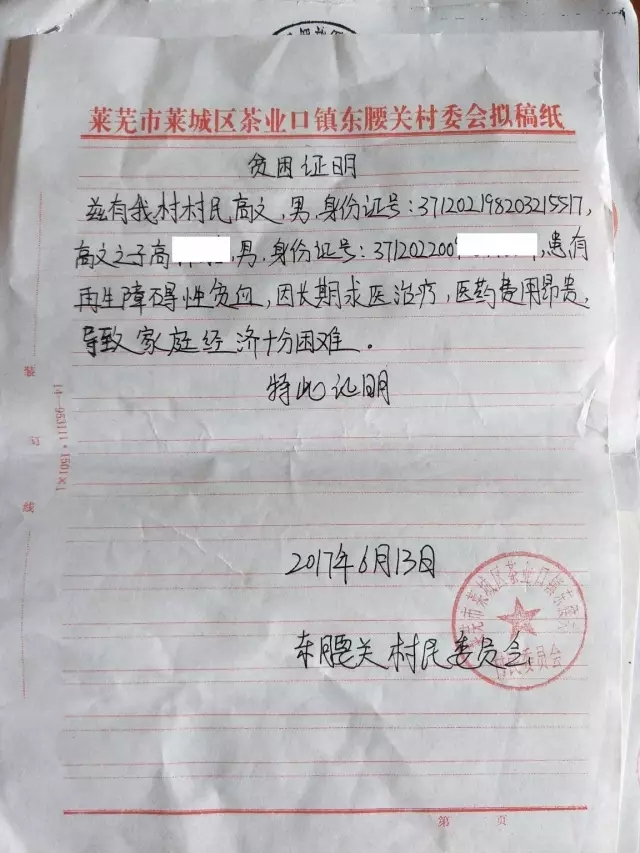 莱芜市莱城区茶业口镇东腰关村委会拟稿纸
贫困证明
兹有我村村民高文,男,身份证号:371202198203215517,
高文之子高 ,男,身份证号:3712022009 ,患有
再生障碍性贫血,因长期求医治疗,医药费用昂贵,
导致家庭经济十分困难。
特此证明
2017年6月13日
东腰关村民委员会
莱芜市莱城区茶业口镇东腰关
村民委员会
装
订
线
14-953111·1501×1
第 页